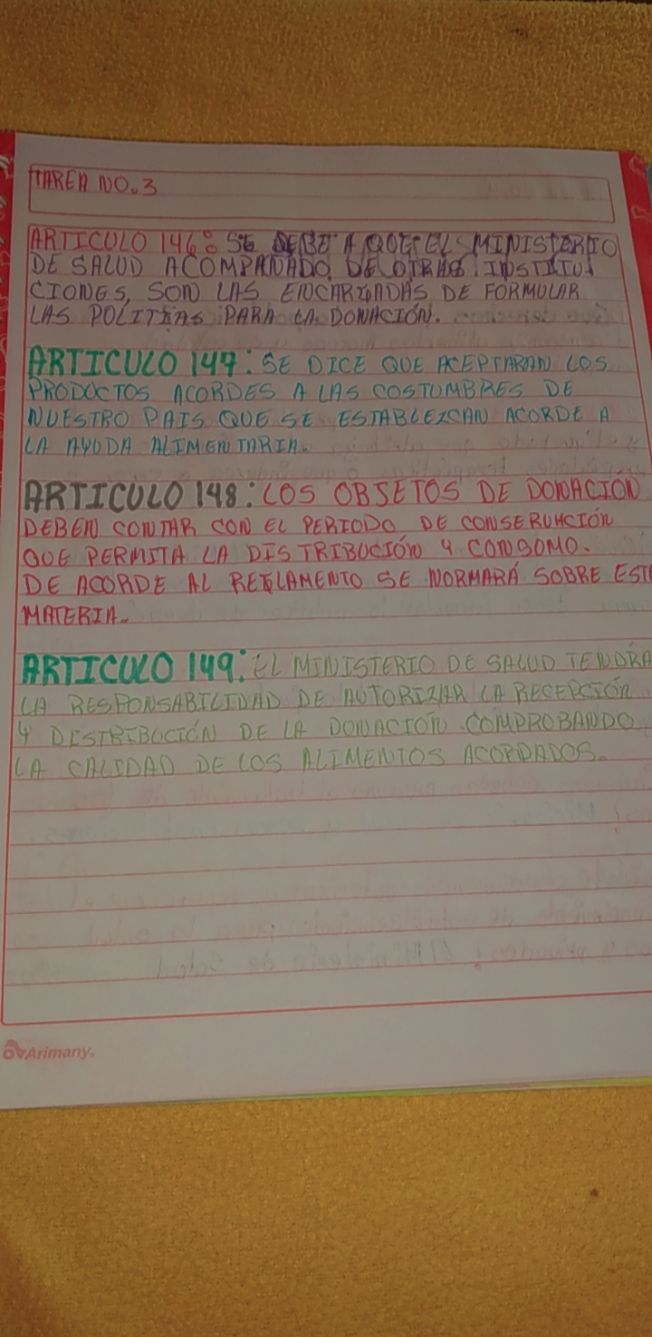 TAREA NO.3
ARTICULO 146: SE DEBE A QUE EL MINISTERIO
DE SALUD ACOMPAÑADO DE OTRAS INSTITU
CIONES, SON LAS ENCARGADAS DE FORMULAR
LAS POLITIAS PARA LA DONACIÓN.
ARTICULO 147: SE DICE QUE ACEPTARAN LOS
PRODUCTOS ACORDES A LAS COSTUMBRES DE
NUESTRO PAIS QUE SE ESTABLEZCAN ACORDE A
LA AYUDA ALIMENTARIA.
ARTICULO 148: LOS OBSETOS DE DONACIÓN
DEBEN CONTAR CON EL PERIODO DE CONSERVACIÓN
QUE PERMITA LA DISTRIBUCIÓN Y CONSUMO.
DE ACORDE AL REGLAMENTO SE NORMARÁ SOBRE EST
MATERIA.
ARTICULO 149: EL MINISTERIO DE SALUD TENDRA
LA RESPONSABILIDAD DE AUTORIZAR LA RECEPCIÓN
Y DISTRIBUCIÓN DE LA DONACIÓN COMPROBANDO
LA CALIDAD DE LOS ALIMENTOS ACORDADOS.
Arimany.